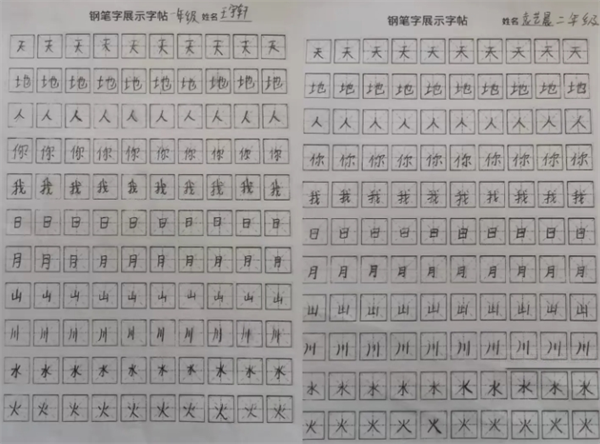 钢笔字展示字帖 一年级 姓名
天 天 天 天 天 天 天 天 天 天
地 地 地 地 地 地 地 地 地 地
人 人 人 人 人 人 人 人 人 人
你 你 你 你 你 你 你 你 你 你
我 我 我 我 我 我 我 我 我 我
日 日 日 日 日 日 日 日 日 日
月 月 月 月 月 月 月 月 月 月
山 山 山 山 山 山 山 山 山 山
川 川 川 川 川 川 川 川 川 川
水 水 水 水 水 水 水 水 水 水
火 火 火 火 火 火 火 火 火 火
钢笔字展示字帖 姓名 二年级
天 天 天 天 天 天 天 天 天 天
地 地 地 地 地 地 地 地 地 地
人 人 人 人 人 人 人 人 人 人
你 你 你 你 你 你 你 你 你 你
我 我 我 我 我 我 我 我 我 我
日 日 日 日 日 日 日 日 日 日
月 月 月 月 月 月 月 月 月 月
山 山 山 山 山 山 山 山 山 山
川 川 川 川 川 川 川 川 川 川
水 水 水 水 水 水 水 水 水 水
火 火 火 火 火 火 火 火 火 火